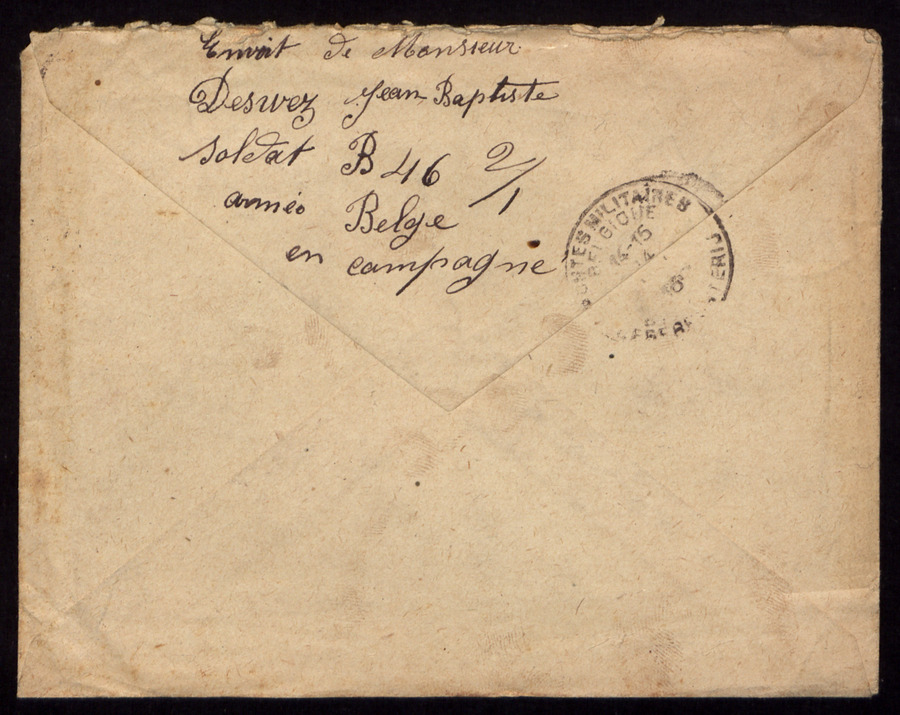 Envoit de Monsieur
Deswez Jean Baptiste
soldat B 46 2/1
armée Belge
en campagne
POSTES MILITAIRES
BELGIQUE
14-15